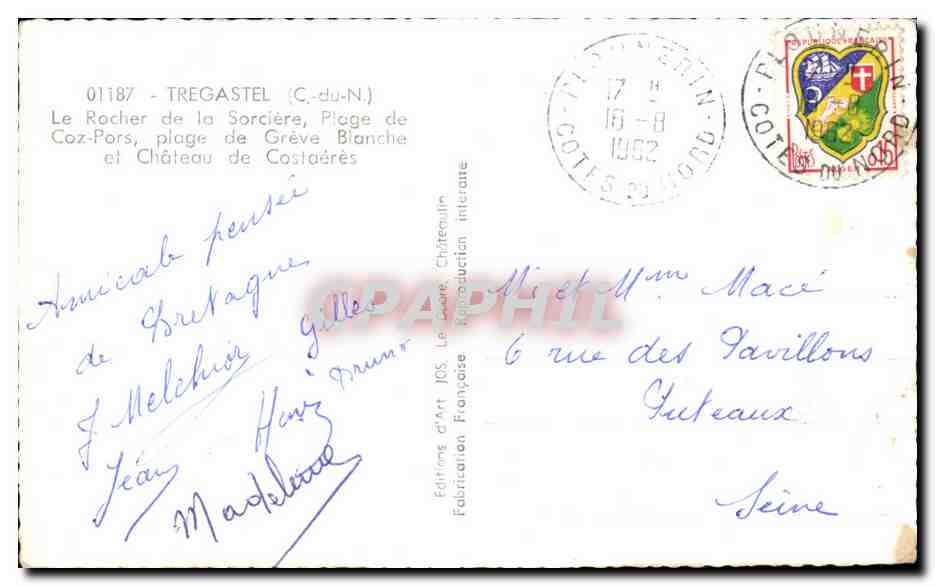 01187 - TREGASTEL (C.-du-N.)
Le Rocher de la Sorcière, Plage de
Coz-Pors, plage de Grève Blanche
et Château de Costaérès
Amicale pensée
de Bretagne
J Melchior Gilles
Jean Henri Bruno
Madeleine
Editions d'Art JOS. Le Doaré, Châteaulin
Fabrication Française Reproduction interdite
17 H
18-8
1962
COTES DU NORD
REPUBLIQUE FRANÇAISE
1962
POSTES
ALGER 0,15
COTES DU NORD
CPAPHIL
Mr et Mme Macé
6 rue des Pavillons
Puteaux
Seine